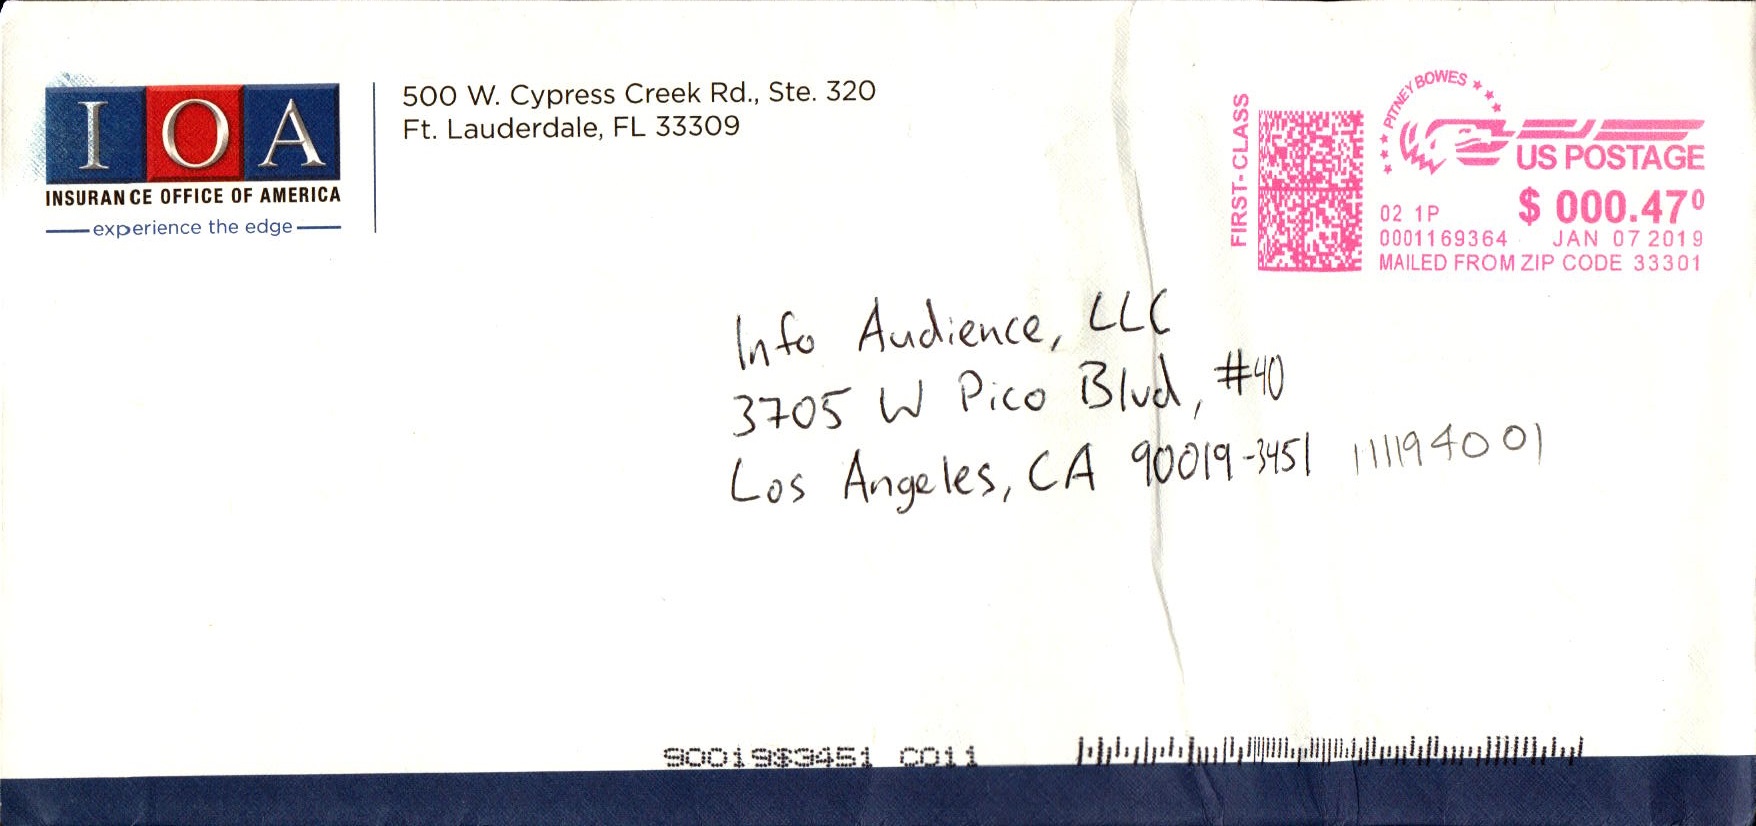 I O A
INSURANCE OFFICE OF AMERICA
experience the edge
500 W. Cypress Creek Rd., Ste. 320
Ft. Lauderdale, FL 33309
FIRST-CLASS
PITNEY BOWES
US POSTAGE
$ 000.47⁰
02 1P
0001169364 JAN 07 2019
MAILED FROM ZIP CODE 33301
Info Audience, LLC
3705 W Pico Blvd, #40
Los Angeles, CA 90019-3451 111194001
90019$3451 C011